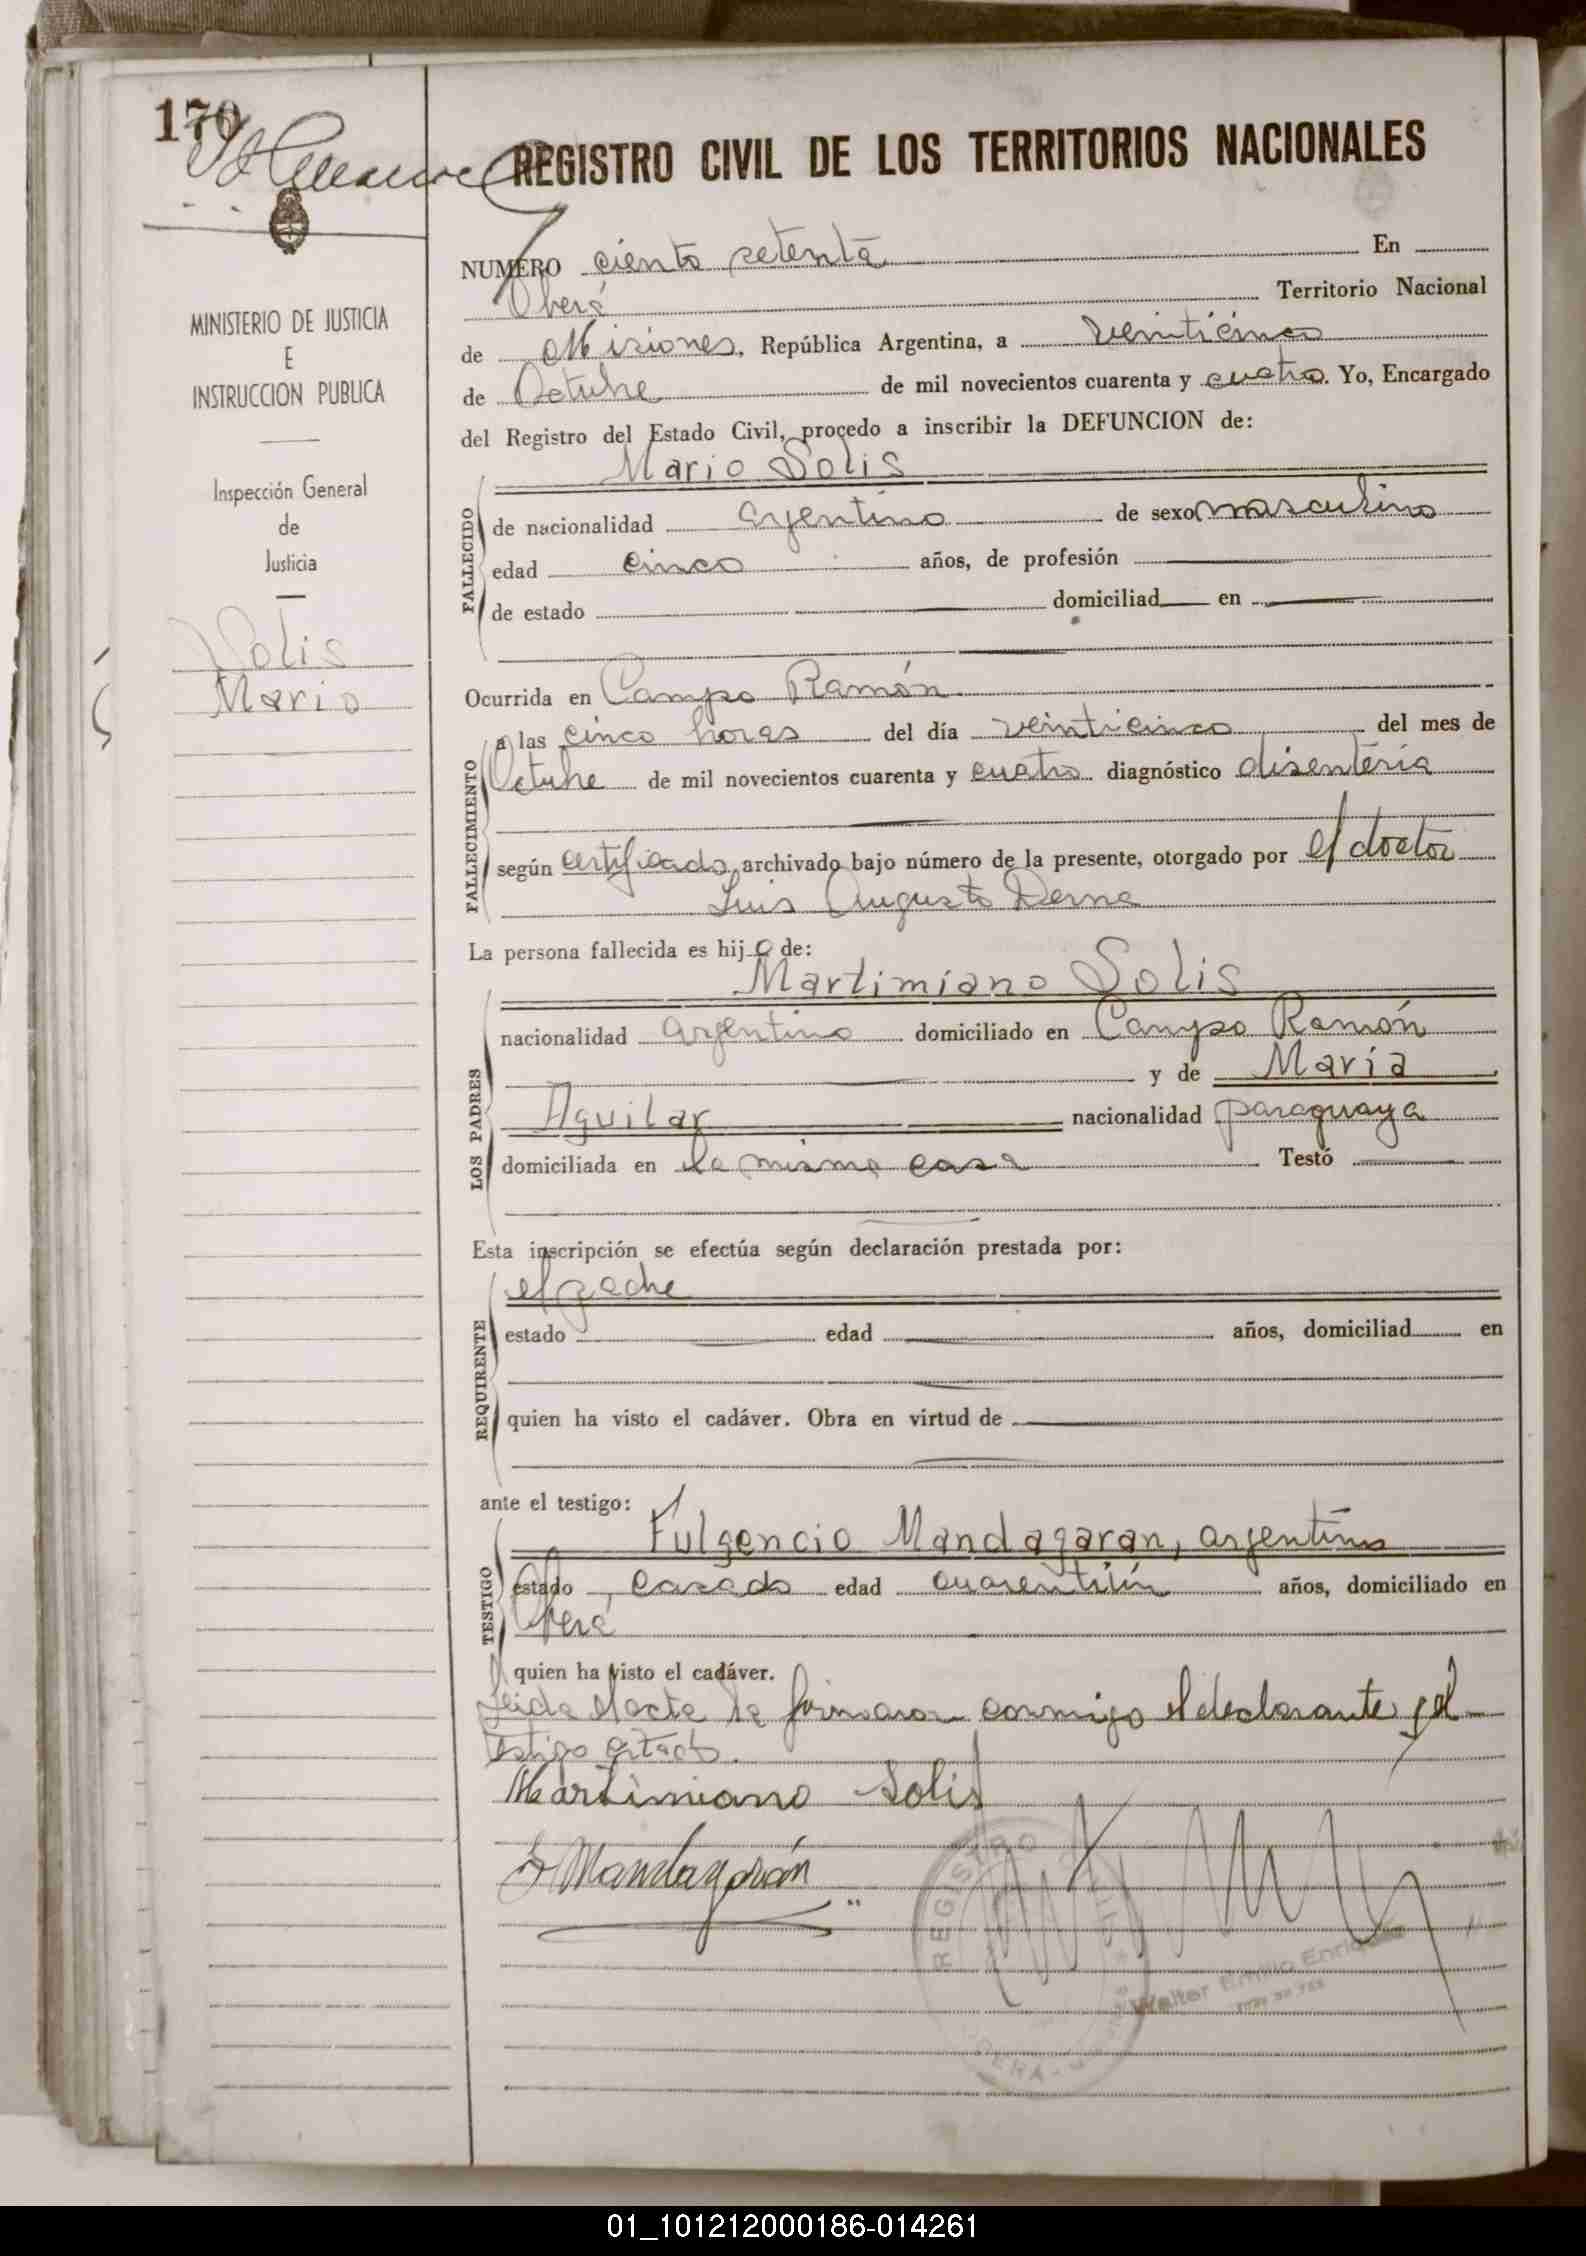 170
REGISTRO CIVIL DE LOS TERRITORIOS NACIONALES
MINISTERIO DE JUSTICIA
E
INSTRUCCION PUBLICA
Inspección General
de
Justicia
Solis
Mario
NUMERO ciento setenta En
Oberá Territorio Nacional
de Misiones, República Argentina, a veinticinco
de Octubre de mil novecientos cuarenta y cuatro. Yo, Encargado
del Registro del Estado Civil, procedo a inscribir la DEFUNCION de:
Mario Solis
FALLECIDO
de nacionalidad argentino de sexo masculino
edad cinco años, de profesión
de estado domiciliad en
Ocurrida en Campo Ramón
FALLECIMIENTO
a las cinco horas del día veinticinco del mes de
Octubre de mil novecientos cuarenta y cuatro diagnóstico disentería
según certificado archivado bajo número de la presente, otorgado por el doctor
Luis Augusto Derna
La persona fallecida es hijo de:
LOS PADRES
Martimiano Solis
nacionalidad argentino domiciliado en Campo Ramón
y de María
Aguilar nacionalidad paraguaya
domiciliada en la misma casa Testó
Esta inscripción se efectúa según declaración prestada por:
REQUIRENTE
el padre
estado edad años, domiciliad en
quien ha visto el cadáver. Obra en virtud de
ante el testigo:
TESTIGO
Fulgencio Mandagaran, argentino
estado casado edad cuarentiún años, domiciliado en
Oberá
quien ha visto el cadáver.
Leida el acta la firmaron conmigo el declarante y el
testigo citado.
Martimiano Solis
F Mandagarán
REGISTRO
Walter Emilio
01_101212000186-014261